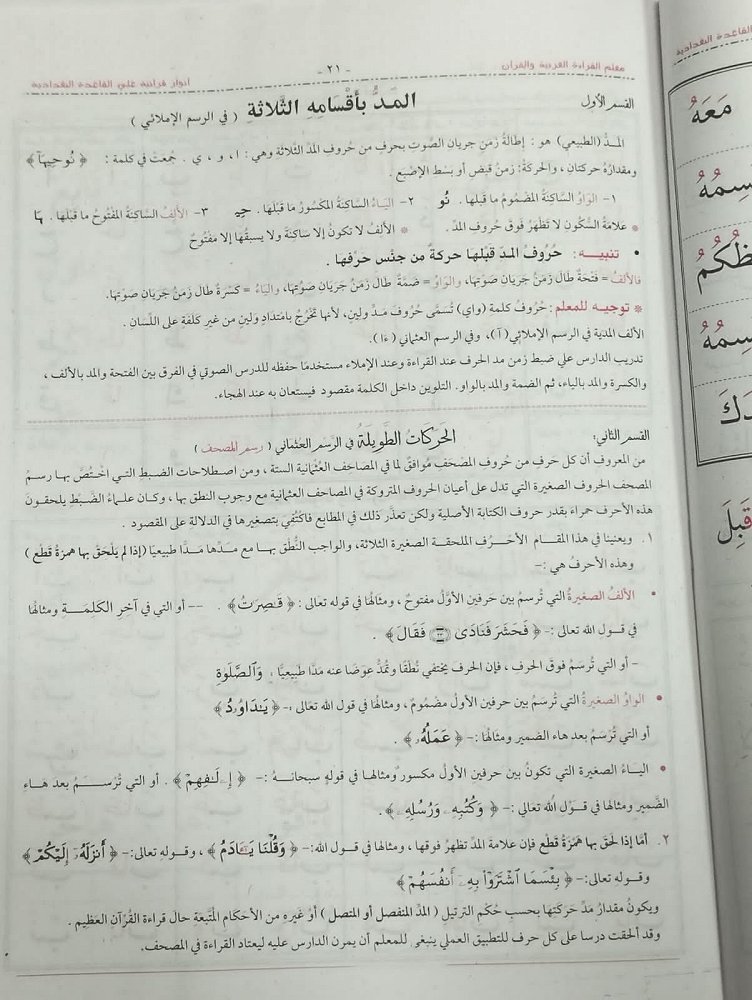 معلم القراءة العربية والقرآن
- ٢١ -
أنوار قرآنية على القاعدة البغدادية
القسم الأول
المَدُّ بأقْسَامِهِ الثَّلاثَةِ ( في الرسم الإملائي )
المَدُّ (الطبيعي) هو : إطالَةُ زمَنِ جريانِ الصَّوتِ بحرفٍ من حُروفِ المدِّ الثَّلاثةِ وهي : ا ، و ، ي . جُمعتْ في كلمة : ﴿ نُوحِيهَآ ﴾
ومقدارُه حركتانِ ، والحركَةُ: زمنُ قبضِ أو بَسْطِ الإصْبَعِ .
١- الواوُ السَّاكِنَةُ المَضْمُومُ ما قبلَها . نُو ٢- اليَاءُ السَّاكِنَةُ المكْسُورُ ما قبْلَها . حِي ٣- الألِفُ السَّاكِنَةُ المَفْتُوحُ ما قبْلَها . هَا
* علامَةُ السُّكُونِ لا تَظهَرُ فَوقَ حُروفِ المَدِّ . * الألفُ لا تكونُ إلا ساكنةً ولا يسبقُها إلا مفتوحٌ
• تنبيـه : حُرُوفُ المـدِّ قبْلَها حركةٌ من جنْسِ حرفِها .
فالألفُ = فتْحَةٌ طالَ زمَنُ جرَيانِ صَوتِها، والواوُ = ضَمَّةٌ طالَ زمَنُ جَرَيانِ صَوتِها، والياءُ = كسْرَةٌ طالَ زمَنُ جَريَانِ صَوْتِها.
* توجيه للمعلم : حُرُوفُ كلمة (واي) تُسَمَّى حُروفَ مَـدٍّ ولينٍ، لأنها تَخْرُجُ بامْتِدَادٍ ولينٍ من غيرِ كلفةٍ على اللّسَانِ .
الألف المدية في الرسم الإملائي ( آ )، وفي الرسم العثماني (ءَا ).
تدريب الدارس على ضبط زمن مد الحرف عند القراءة وعند الإملاء مستخدمًا حفظه للدرس الصوتي في الفرق بين الفتحة والمد بالألف ،
والكسرة والمد بالياء، ثم الضمة والمد بالواو. التلوين داخل الكلمة مقصود فيستعان به عند الهجاء.
القسم الثاني:
الحَرَكَاتُ الطَّوِيلَةُ في الرسم العثماني ( رسم المصحف )
من المعروف أن كل حرفٍ من حُروفِ المصْحَفِ مُوافقٌ لما في المصاحفِ العُثمَانيةِ الستةِ ، ومن اصطلاحاتِ الضبطِ التـي اختُصَّ بهـا رسمُ
المصحفِ الحروفُ الصغيرةُ التي تدل على أعيانِ الحروفِ المتروكةِ في المصاحفِ العثمانيةِ مع وجوبِ النطقِ بها ، وكـان علمـاءُ الضَّبـطِ يلحقـونَ
هذه الأحرفَ حمراءَ بقدرِ حروفِ الكتابةِ الأصليةِ ولكن تعذّر ذلك في المطابعِ فاكتُفي بتصغيرِها في الدلالة على المقصود .
١. ويعنينا في هذا المقـام الأحـرُفُ الملحقـة الصغيرةُ الثلاثة، والواجب النُّطْقُ بهـا مع مَـدِّها مَـدًّا طبيعيًا (إذا لم يلْحَقْ بها همزةُ قطْعٍ )
وهذه الأحرفُ هي :-
• الألفُ الصغيرةُ التي تُرسمُ بين حرفين الأوَّلُ مفتوحٌ ، ومثالُها في قوله تعالى : ﴿ قَـٰصِرَٰتُ ﴾ . -- أو التي في آخرِ الكلمَـةِ ومثالُها
في قول الله تعالى :- ﴿ فَحَشَرَ فَنَادَىٰ ۝ فَقَالَ ﴾ .
- أو التي تُرسَمُ فوق الحرفِ ، فإن الحرفَ يختفي نُطقًا وتُمدُّ عِوَضًا عنه مَدًا طَبِيعِيًّا ؛ وَٱلصَّلَوٰةِ
• الواوُ الصغيرةُ التي تُرْسَمُ بين حرفين الأولُ مضْمُومٌ ، ومثالُها في قولِ الله تعَالى :- ﴿ يَـٰدَاوُۥدُ ﴾
أو التي تُرْسَمُ بعد هاء الضميرِ ومثالُها :- ﴿ عَمَلُهُۥ ﴾ .
• اليـاءُ الصغيرة التي تكونُ بين حرفين الأولُ مكسورٌ ومثالهـا في قوله سبحانـهُ :- ﴿ إِۦلَـٰفِهِمْ ﴾ . أو التي تُرْسَــمُ بعد هـاءِ
الضَّمير ومثالُها في قـوْل الله تعالى :- ﴿ وَكُتُبِهِۦ وَرُسُلِهِۦ ﴾ .
٢. أمَّا إذا لحق بها همْزةُ قَطْع فإن علامةَ المدِّ تظهرُ فوقها ، ومثالُها في قول الله:- ﴿ وَقُلْنَا يَـٰٓـَٔادَمُ ﴾ ، وقـوله تعالى:- ﴿ أَنزَلَهُۥٓ إِلَيْكُمْ ﴾
وقـوله تعالى:- ﴿ بِئْسَمَا ٱشْتَرَوْا۟ بِهِۦٓ أَنفُسَهُمْ ﴾
ويكونُ مقدارُ مَدِّ حركتِها بحسبِ حُكم الترتيلِ ( المدِّ المنفصل أو المتصل ) أوْ غيرِه من الأحْكامِ المتَّبعَة حالَ قراءة القُرْآن العظيمِ .
وقد ألحقت درسا على كل حرف للتطبيق العملي ينبغي للمعلم أن يمرن الدارس عليه ليعتاد القراءة في المصحف.
القاعدة البغدادية
مَعَهُ
سِمُهُ
ظُكُمُ
سِمُهُ
دَكَ
قَبِلَ